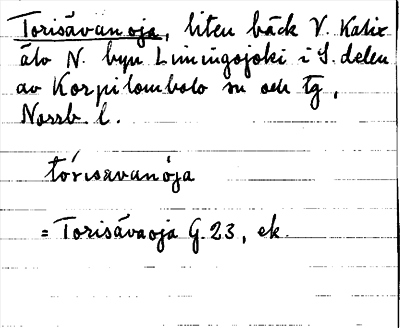 Torisävanoja, liten bäck V. Kalix
älv N. byn Liningojoki i S. delen
av Korpilombolo sn och tg,
Norrb. l.
tórisävanòja
= Torisävaoja G. 23, ek.